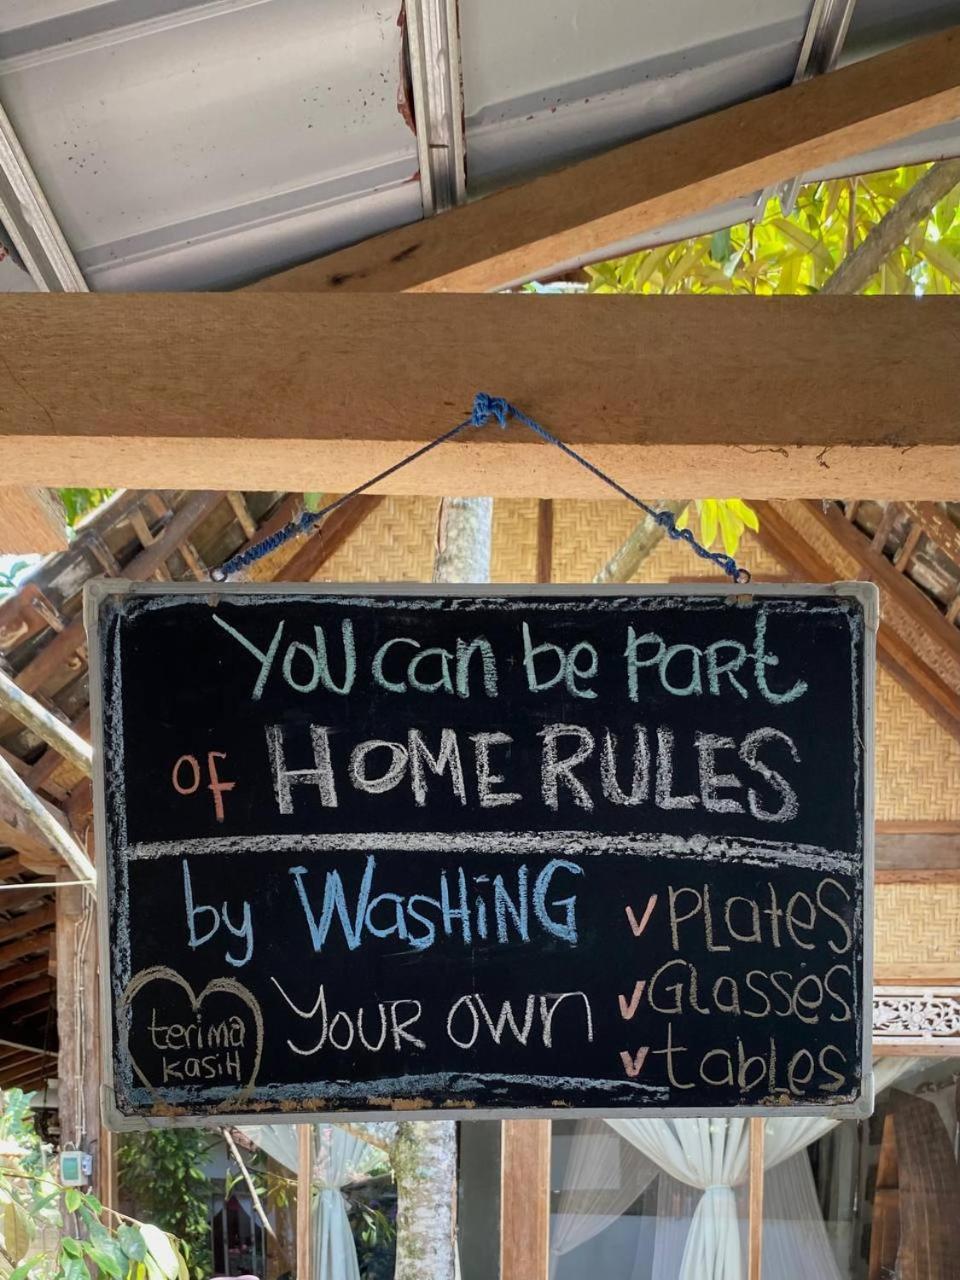 You can be Part
of HOME RULES
by WasHiNG
YOUR own
✓ PLateS
✓ GLasses
✓ tables
terima
kasiH